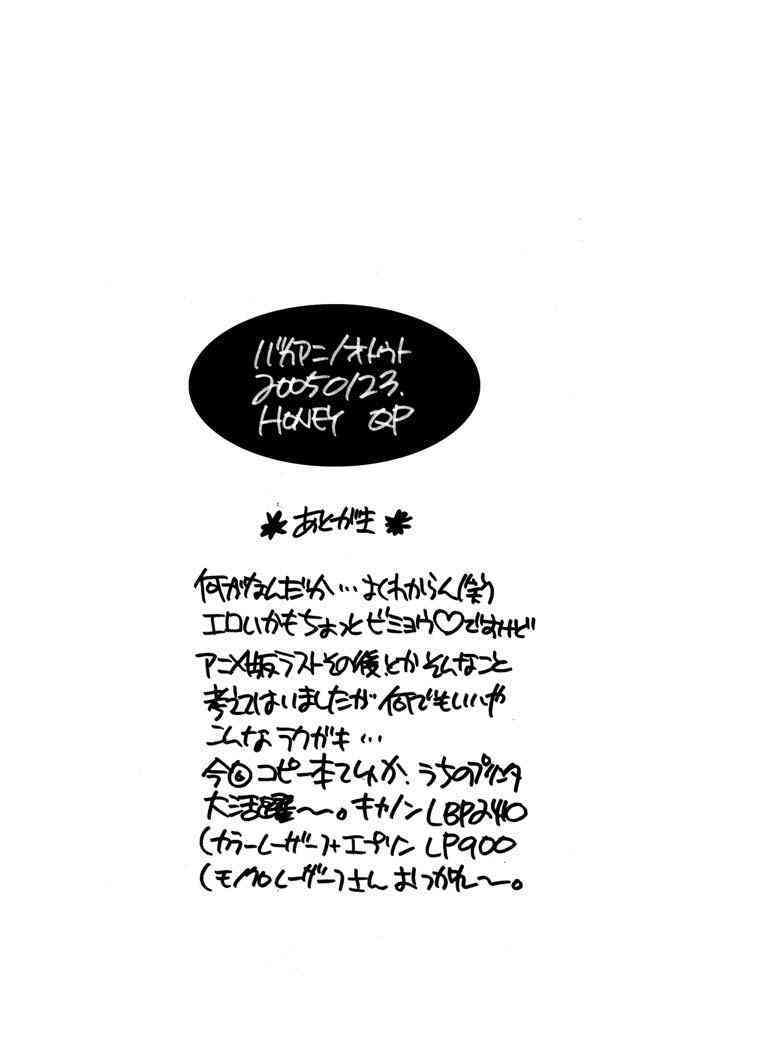 バカアニノオトウト
20050123.
HONEY QP
*あとがき*
何がなんだか…よくわからん(笑)
エロいかもちょっとビミョウ♡ですけど
アニメ版ラストその後とかそんなこと
考えてはいましたが何でもいいや
こんなラクガキ…
今回コピー本てゆか、うちのプリンタ
大活躍〜。キヤノンLBP2410
(カラーレーザー)+エプソンLP900
(モノレーザー)さんおつかれ〜。